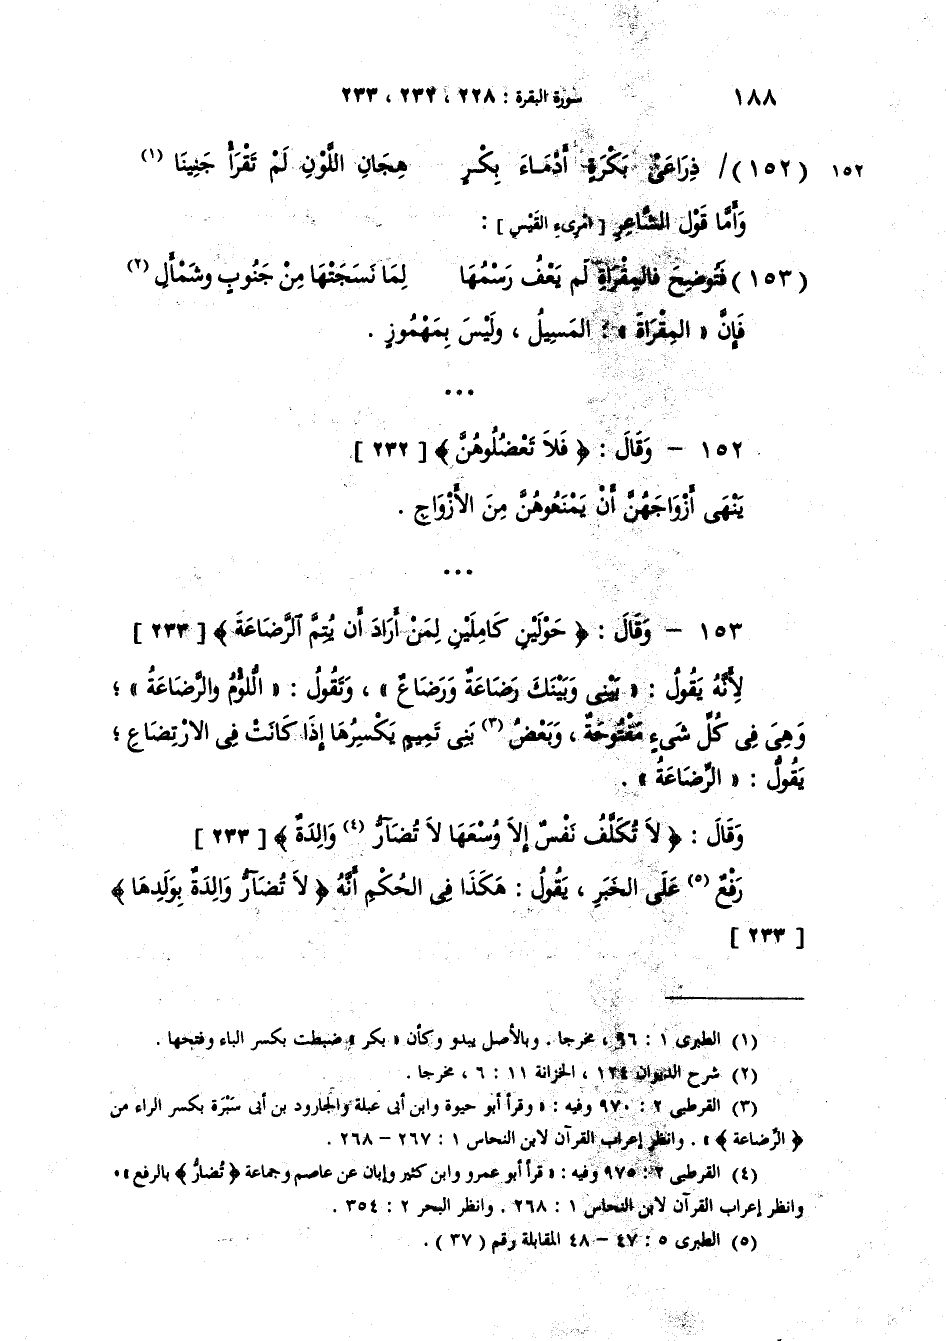 ١٨٨ سورة البقرة : ٢٢٨ ، ٢٣٢ ، ٢٣٣
١٥٢ (١٥٢)/ ذِرَاعَىْ بَكْرَةٍ أَدْمَـاءَ بِكْـرٍ هِجَانِ اللَّوْنِ لَمْ تَقْرَأْ جَنِينَا (١)
وَأَمَّا قَوْل الشَّاعِرِ [ امْرِىءِ القَيْسِ ] :
(١٥٣) فَتُوضِحَ فالمِقْرَاةِ لَم يَعْفُ رَسْمُهَا لِمَا نَسَجَتْهَا مِنْ جَنُوبٍ وشَمْأَلِ (٢)
فَإِنَّ « المِقْرَاةَ » : المَسِيلُ ، ولَيْسَ بِمَهْمُوزٍ .
• • •
١٥٢ – وَقَالَ : ﴿ فَلاَ تَعْضُلُوهُنَّ ﴾ [ ٢٣٢ ]
يَنْهَى أَزْوَاجَهُنَّ أَنْ يَمْنَعُوهُنَّ مِنَ الأَزْوَاجِ .
• • •
١٥٣ – وَقَالَ : ﴿ حَوْلَيْنِ كَامِلَيْنِ لِمَنْ أَرَادَ أَن يُتِمَّ ٱلرَّضَاعَةَ ﴾ [ ٢٣٣ ]
لِأَنَّهُ يَقُولُ : « بَيْنِى وَبَيْنَكَ رَضَاعَةٌ وَرَضَاعٌ » ، وَتَقُولُ : « الُّلؤْمُ والرَّضَاعَةُ » ؛
وَهِىَ فِى كُلِّ شَىءٍ مَفْتُوحَةٌ ، وَبَعْضُ (٣) بَنِى تَمِيمٍ يَكْسِرُهَا إِذَا كَانَتْ فِى الارْتِضَاعِ ؛
يَقُولُ : « الرِّضَاعَةُ » .
وَقَالَ : ﴿ لاَ تُكَلَّفُ نَفْسٌ إِلاَّ وُسْعَهَا لاَ تُضَآرُّ (٤) وَالِدَةٌ ﴾ [ ٢٣٣ ]
رَفْعٌ (٥) عَلَى الخَبَرِ ، يَقُولُ : هَكَذَا فِى الحُكْمِ أَنَّهُ ﴿ لاَ تُضَآرُّ وَالِدَةٌ بِوَلَدِهَا ﴾
[ ٢٣٣ ]
(١) الطبرى ١ : ٩٦ ، مخرجا . وبالأصل يبدو وكأن « بكر » ضبطت بكسر الباء وفتحها .
(٢) شرح الديوان ١٢٤ ، الخزانة ١١ : ٦ ، مخرجا .
(٣) القرطبى ٢ : ٩٧٠ وفيه : « وقرأ أبو حيوة وابن أبى عبلة والجارود بن أبى سَبْرَة بكسر الراء من
﴿ الرِّضاعة ﴾ » . وانظر إعراب القرآن لابن النحاس ١ : ٢٦٧ – ٢٦٨ .
(٤) القرطبى ٢ : ٩٧٥ وفيه : « قرأ أبو عمرو وابن كثير وإبان عن عاصم وجماعة ﴿ تُضارُّ ﴾ بالرفع » .
وانظر إعراب القرآن لابن النحاس ١ : ٢٦٨ . وانظر البحر ٢ : ٣٥٤ .
(٥) الطبرى ٥ : ٤٧ – ٤٨ المقابلة رقم ( ٣٧ ) .